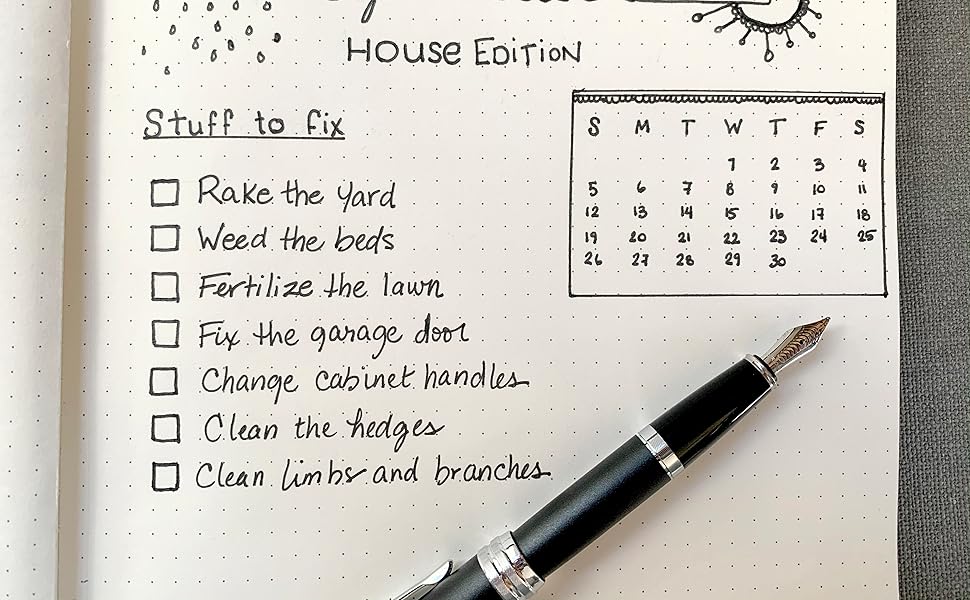 House Edition
Stuff to fix
Rake the yard
Weed the beds
Fertilize the lawn
Fix the garage door
Change cabinet handles
Clean the hedges
Clean limbs and branches
S M T W T F S
1 2 3 4
5 6 7 8 9 10 11
12 13 14 15 16 17 18
19 20 21 22 23 24 25
26 27 28 29 30